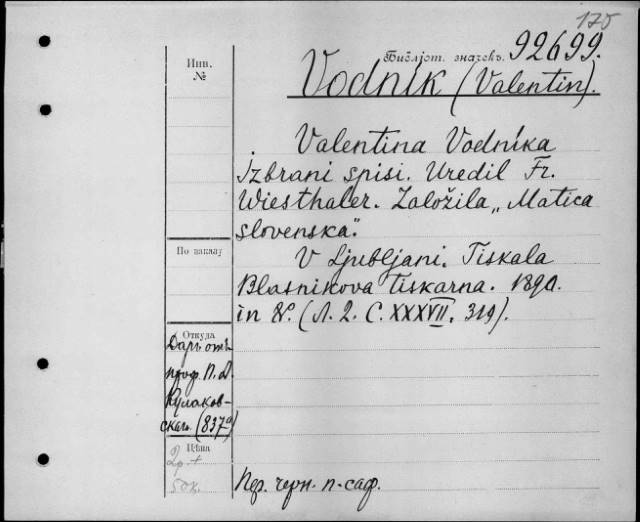 175
Библіот. значекъ. 92699.
Инв.
№
Vodnik (Valentin).
Valentina Vodnika
Izbrani spisi. Uredil Fr.
Wiesthaler. Založila „Matica
slovenska“.
V Ljubljani. Tiskala
Blasnikova tiskarna. 1890.
in 8°. (Л. 2. С. XXXVII. 319).
По заказу
Откуда
Даръ отъ
проф. П. А.
Кулаков-
скаго. (8379)
Цѣна
2р. +
50к.
Пер. черн. п.-саф.